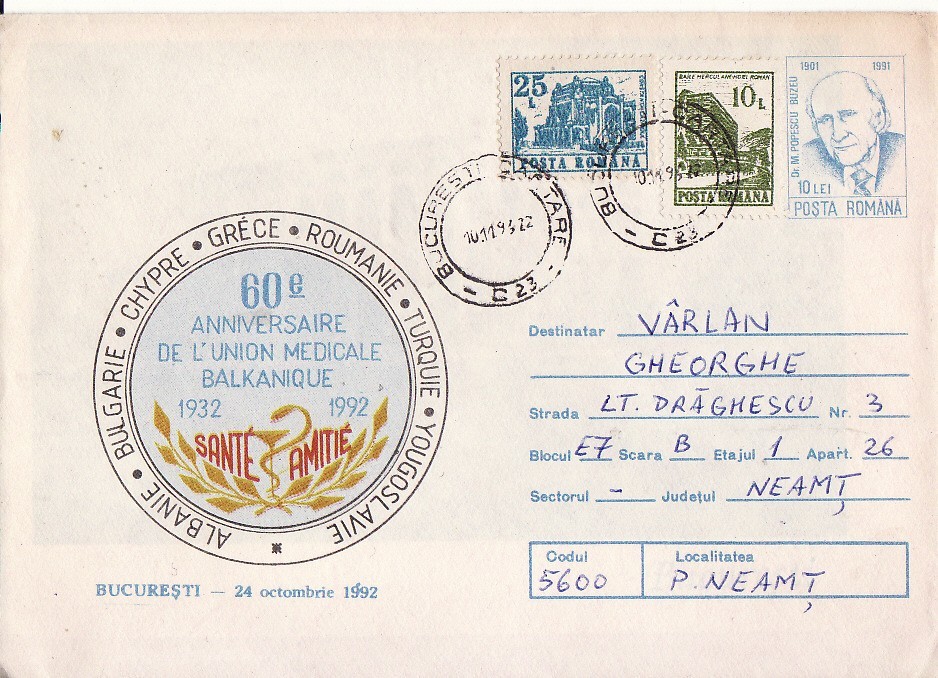 25 L
POȘTA ROMÂNĂ
BĂILE HERCULANE-HOTEL ROMAN
10 L
POȘTA ROMÂNĂ
1901 1991
Dr. M. POPESCU BUZEU
10 LEI
POȘTA ROMÂNĂ
BUCUREȘTI
10.11.93.22
C 23
10.11.93.22
C 23
ALBANIE • BULGARIE • CHYPRE • GRÉCE • ROUMANIE • TURQUIE • YOUGOSLAVIE
60e
ANNIVERSAIRE
DE L'UNION MEDICALE
BALKANIQUE
1932 1992
SANTÉ AMITIÉ
BUCUREȘTI — 24 octombrie 1992
Destinatar VÂRLAN
GHEORGHE
Strada LT. DRĂGHESCU Nr. 3
Blocul E7 Scara B Etajul 1 Apart. 26
Sectorul - Județul NEAMȚ
Codul Localitatea
5600 P. NEAMȚ